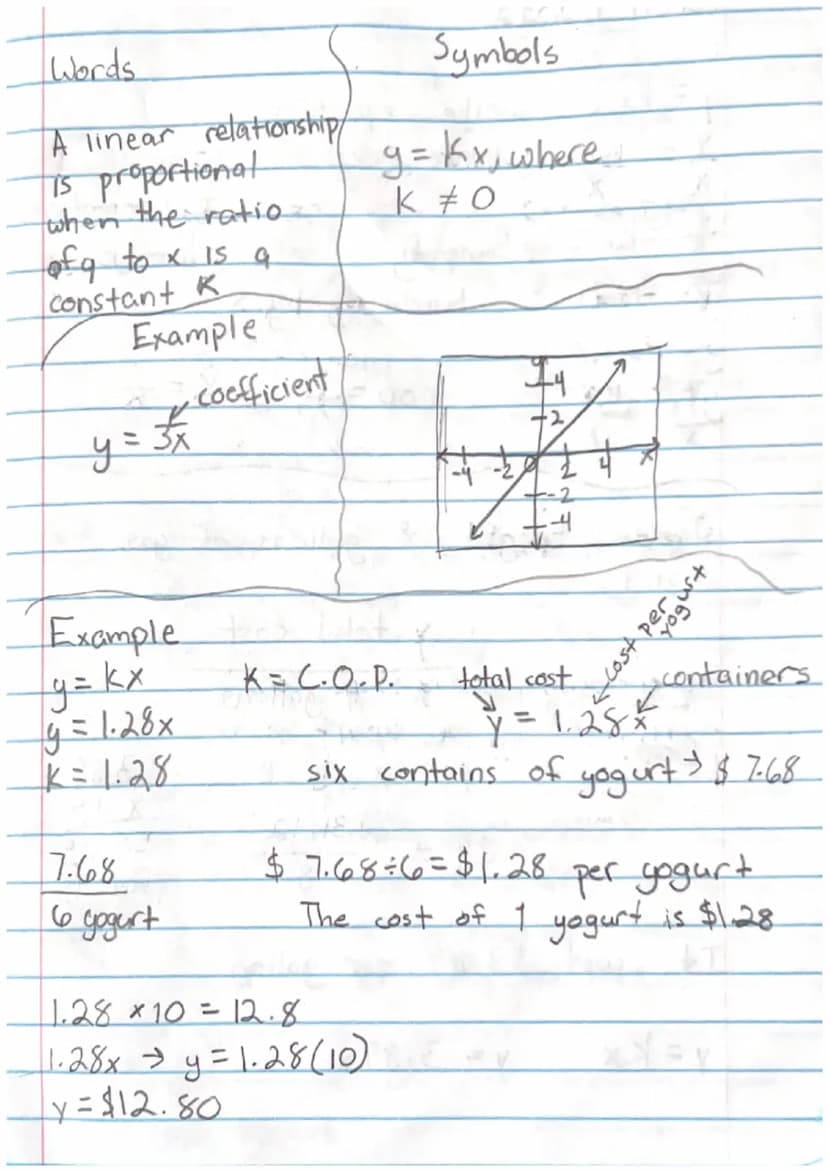 Words
Symbols
A linear relationship
is proportional
when the ratio
of y to x is a
constant K
y = Kx, where
K ≠ 0
Example
coefficient
y = 3x
y
4
2
-4 -2 0 2 4 x
-2
-4
Example
y = kx
y = 1.28x
k = 1.28
K = C.O.P.
total cost
cost per
yogurt
containers
y = 1.28x
six contains of yogurt → $ 7.68
7.68
6 yogurt
$ 7.68÷6=$1.28 per yogurt
The cost of 1 yogurt is $1.28
1.28 ×10 = 12.8
1.28x → y = 1.28(10)
y = $12.80